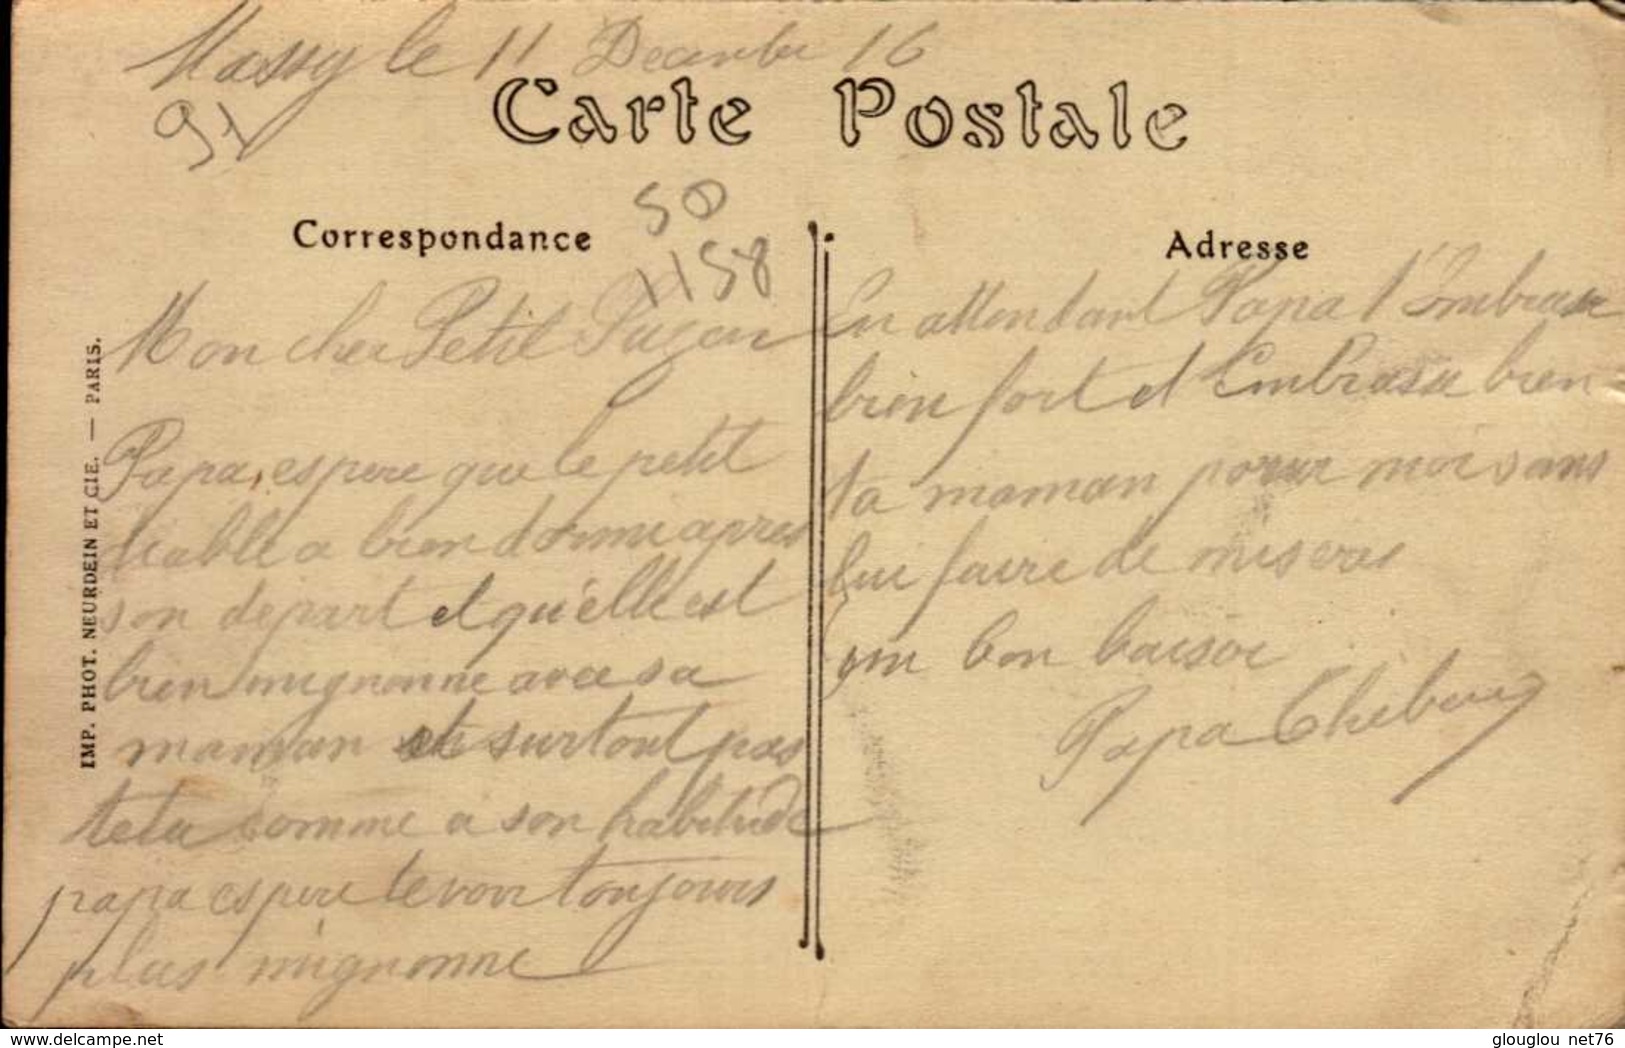 Massy le 11 Decembre 16
91
Carte Postale
50
1158
Correspondance
Adresse
Mon cher Petit
Papa, espere que le petit
diable a bien dormi apres
son depart et qu'elle est
bien mignonne avec sa
maman et surtout pas
tetu comme a son habitude
papa espere te voir toujours
plus mignonne
En attendant Papa t'Embrasse
bien fort et Embrasse bien
ta maman pour moi sans
lui faire de miseres
un bon baiser
Papa
IMP. PHOT. NEURDEIN ET CIE. — PARIS.
www.delcampe.net
glouglou net76